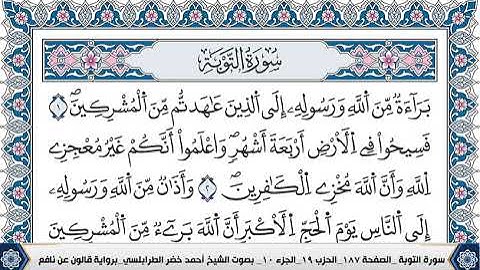 سُورَةُ التَّوْبَةِ
بَرَآءَةٌ مِّنَ اَللَّهِ وَرَسُولِهِۦٓ إِلَى اَلذِينَ عَٰهَدتُّم مِّنَ اَلْمُشْرِكِينَۖ ١
فَسِيحُواْ فِے اِلَارْضِ أَرْبَعَةَ أَشْهُرٖۖ وَاعْلَمُوٓاْ أَنَّكُمْ غَيْرُ مُعْجِزِے
اِللَّهِ وَأَنَّ اَللَّهَ مُخْزِے اِلْكَٰفِرِينَۖ ٢ وَأَذَٰنٌ مِّنَ اَللَّهِ وَرَسُولِهِۦٓ
إِلَى اَلنَّاسِ يَوْمَ اَلْحَجِّ اِلَاكْبَرِ أَنَّ اَللَّهَ بَرِےٓءٌ مِّنَ اَلْمُشْرِكِينَ
سورة التوبة_الصفحة ١٨٧_الحزب ١٩_الجزء ١٠_ بصوت الشيخ أحمد خضر الطرابلسي_برواية قالون عن نافع